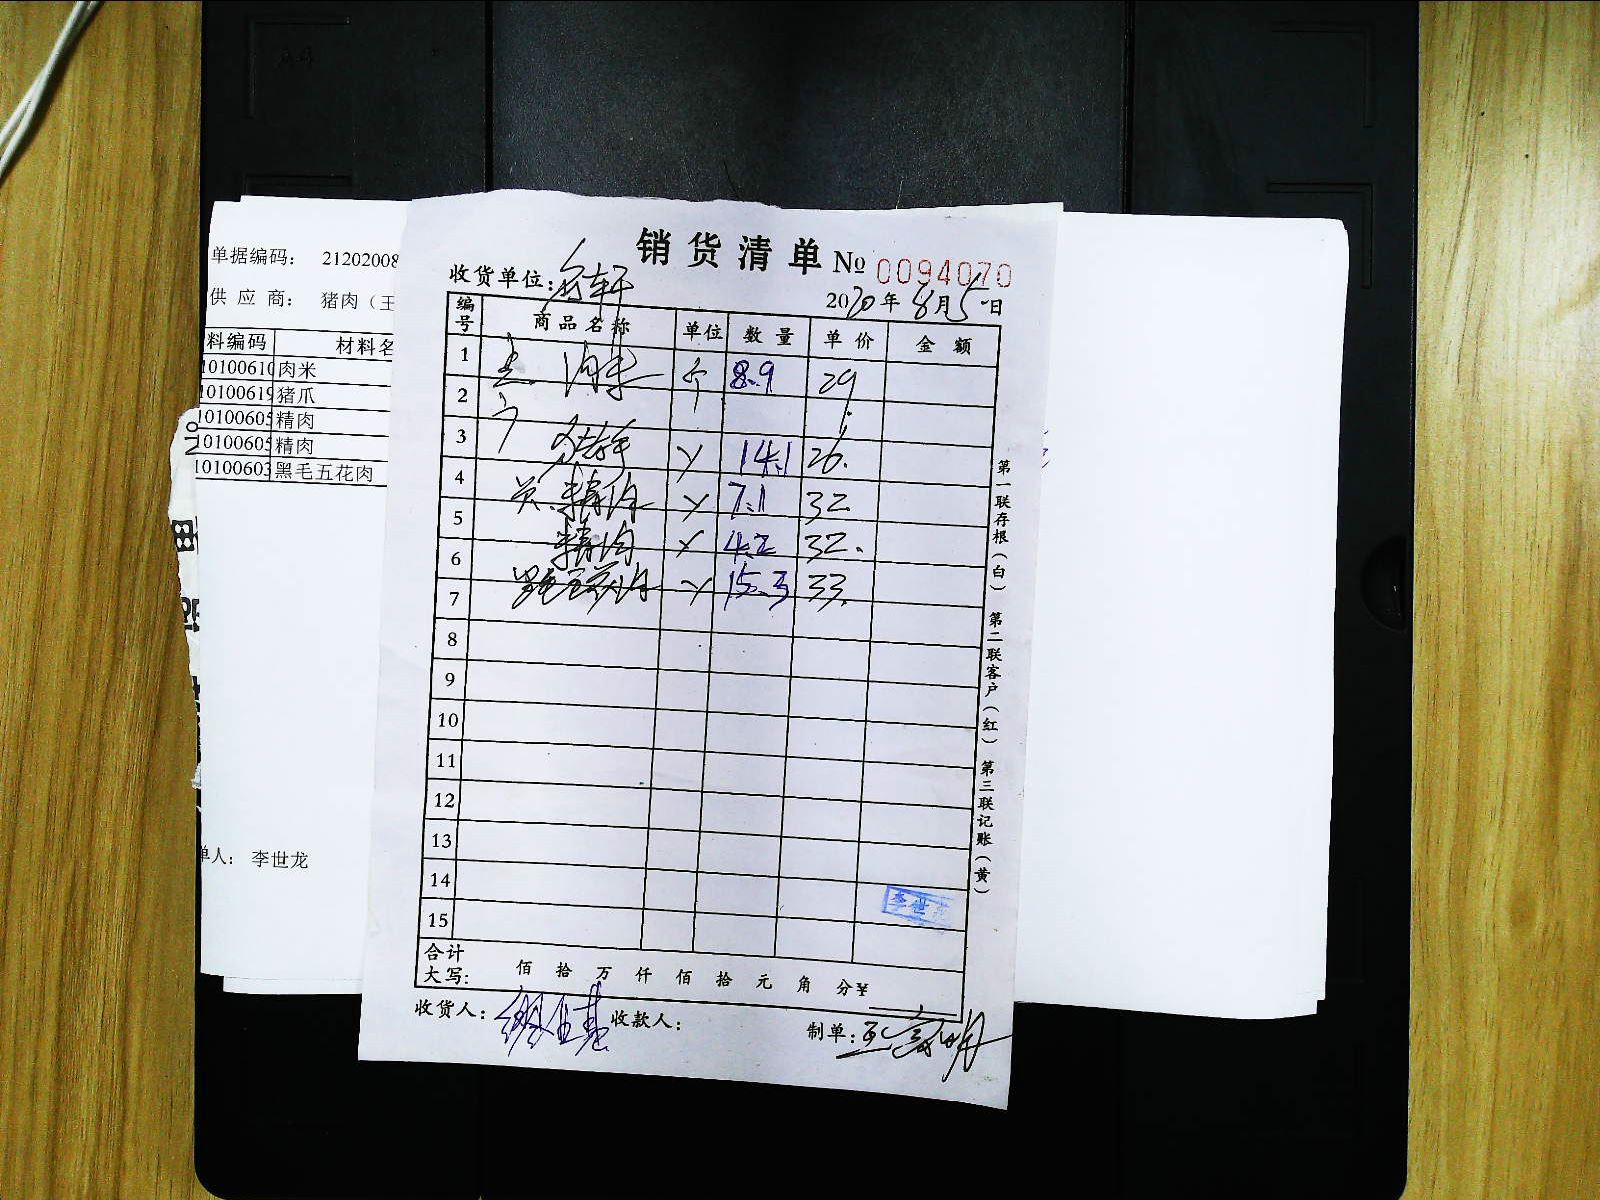 单据编码： 21202008
供 应 商： 猪肉（王
料编码 材料名
10100610 肉米
10100619 猪爪
10100605 精肉
10100605 精肉
10100603 黑毛五花肉
单人： 李世龙
No
销货清单 No 0094070
收货单位：
2020年8月5日
编号 商品名称 单位 数量 单价 金额
1 肉米 斤 8.9 29
2
3 猪手 14.1 26.
4 精肉 7.1 32
5 精肉 4.2 32.
6 黑毛五花肉 15.3 33.
7
8
9
10
11
12
13
14
15
李世龙
合计
大写： 佰 拾 万 仟 佰 拾 元 角 分 ¥
收货人： 收款人： 制单：
第一联存根（白） 第二联客户（红） 第三联记账（黄）